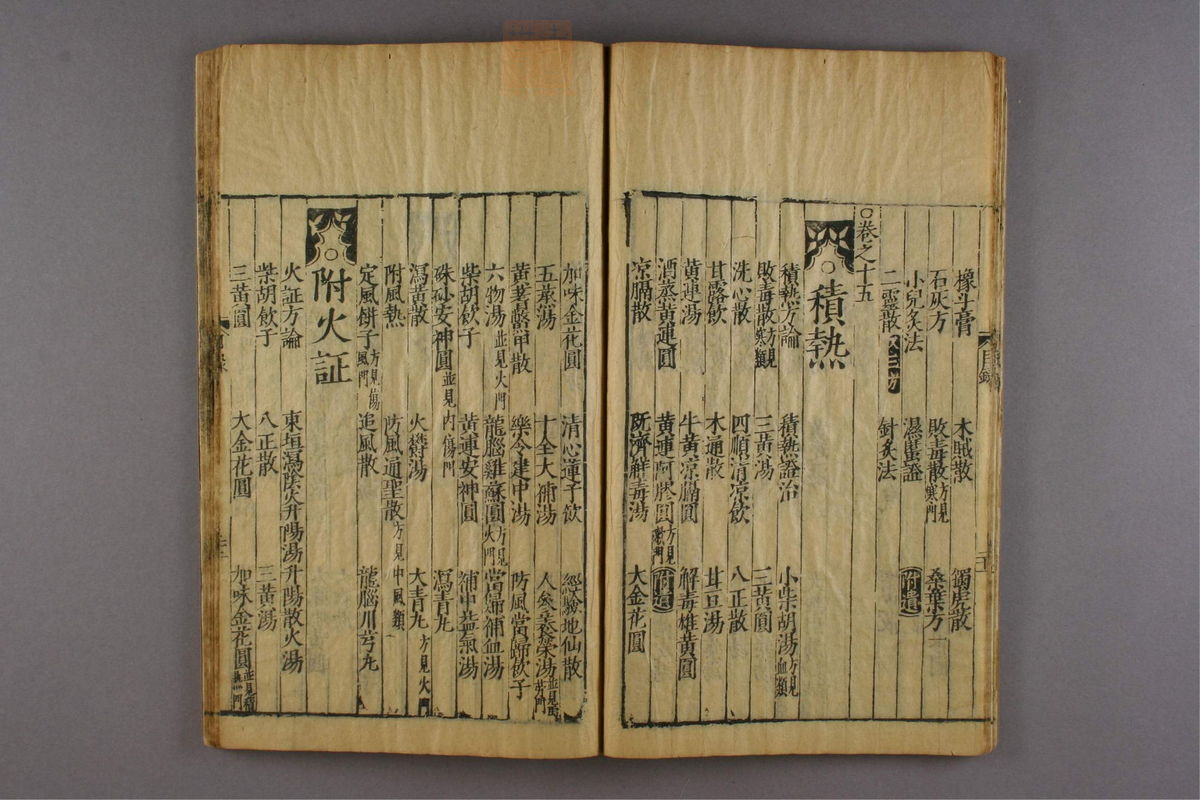 橡斗膏 木賊散 獨虎散
石灰方 敗毒散方見寒門 桑葉方
小兒灸法 濕𧏾證 附遺
二靈散 針灸法
○卷之十五
積熱
積熱方論 積熱證治 小柴胡湯方見血類
敗毒散方見寒類 三黃湯 三黃圓
洗心散 四順清凉飲 八正散
甘露飲 木通散 甘豆湯
黃連湯 牛黃凉膈圓 解毒雄黃圓
酒蒸黃連圓 黃連阿膠圓方見嗽門 附遺
凉膈散 既濟解毒湯 大金花圓
目錄
加味金花圓 清心蓮子飲 經驗地仙散
五蒸湯 十全大補湯 人參養榮湯
黃芪鱉甲散 樂令建中湯 防風當歸飲子
六物湯並見火門 龍腦雞蘇圓方見火門 當歸補血湯
柴胡飲子 黃連安神圓 補中益氣湯
硃砂安神圓並見內傷門 瀉青丸
瀉黃散 火鬱湯 大青丸方見火門
附風熱 防風通聖散方見中風類
定風餅子方見傷風門 追風散 龍腦川芎丸
附火証
火証方論 東垣瀉陰火升陽湯 升陽散火湯
柴胡飲子 八正散 三黃湯
三黃圓 大金花圓 加味金花圓並見積熱門